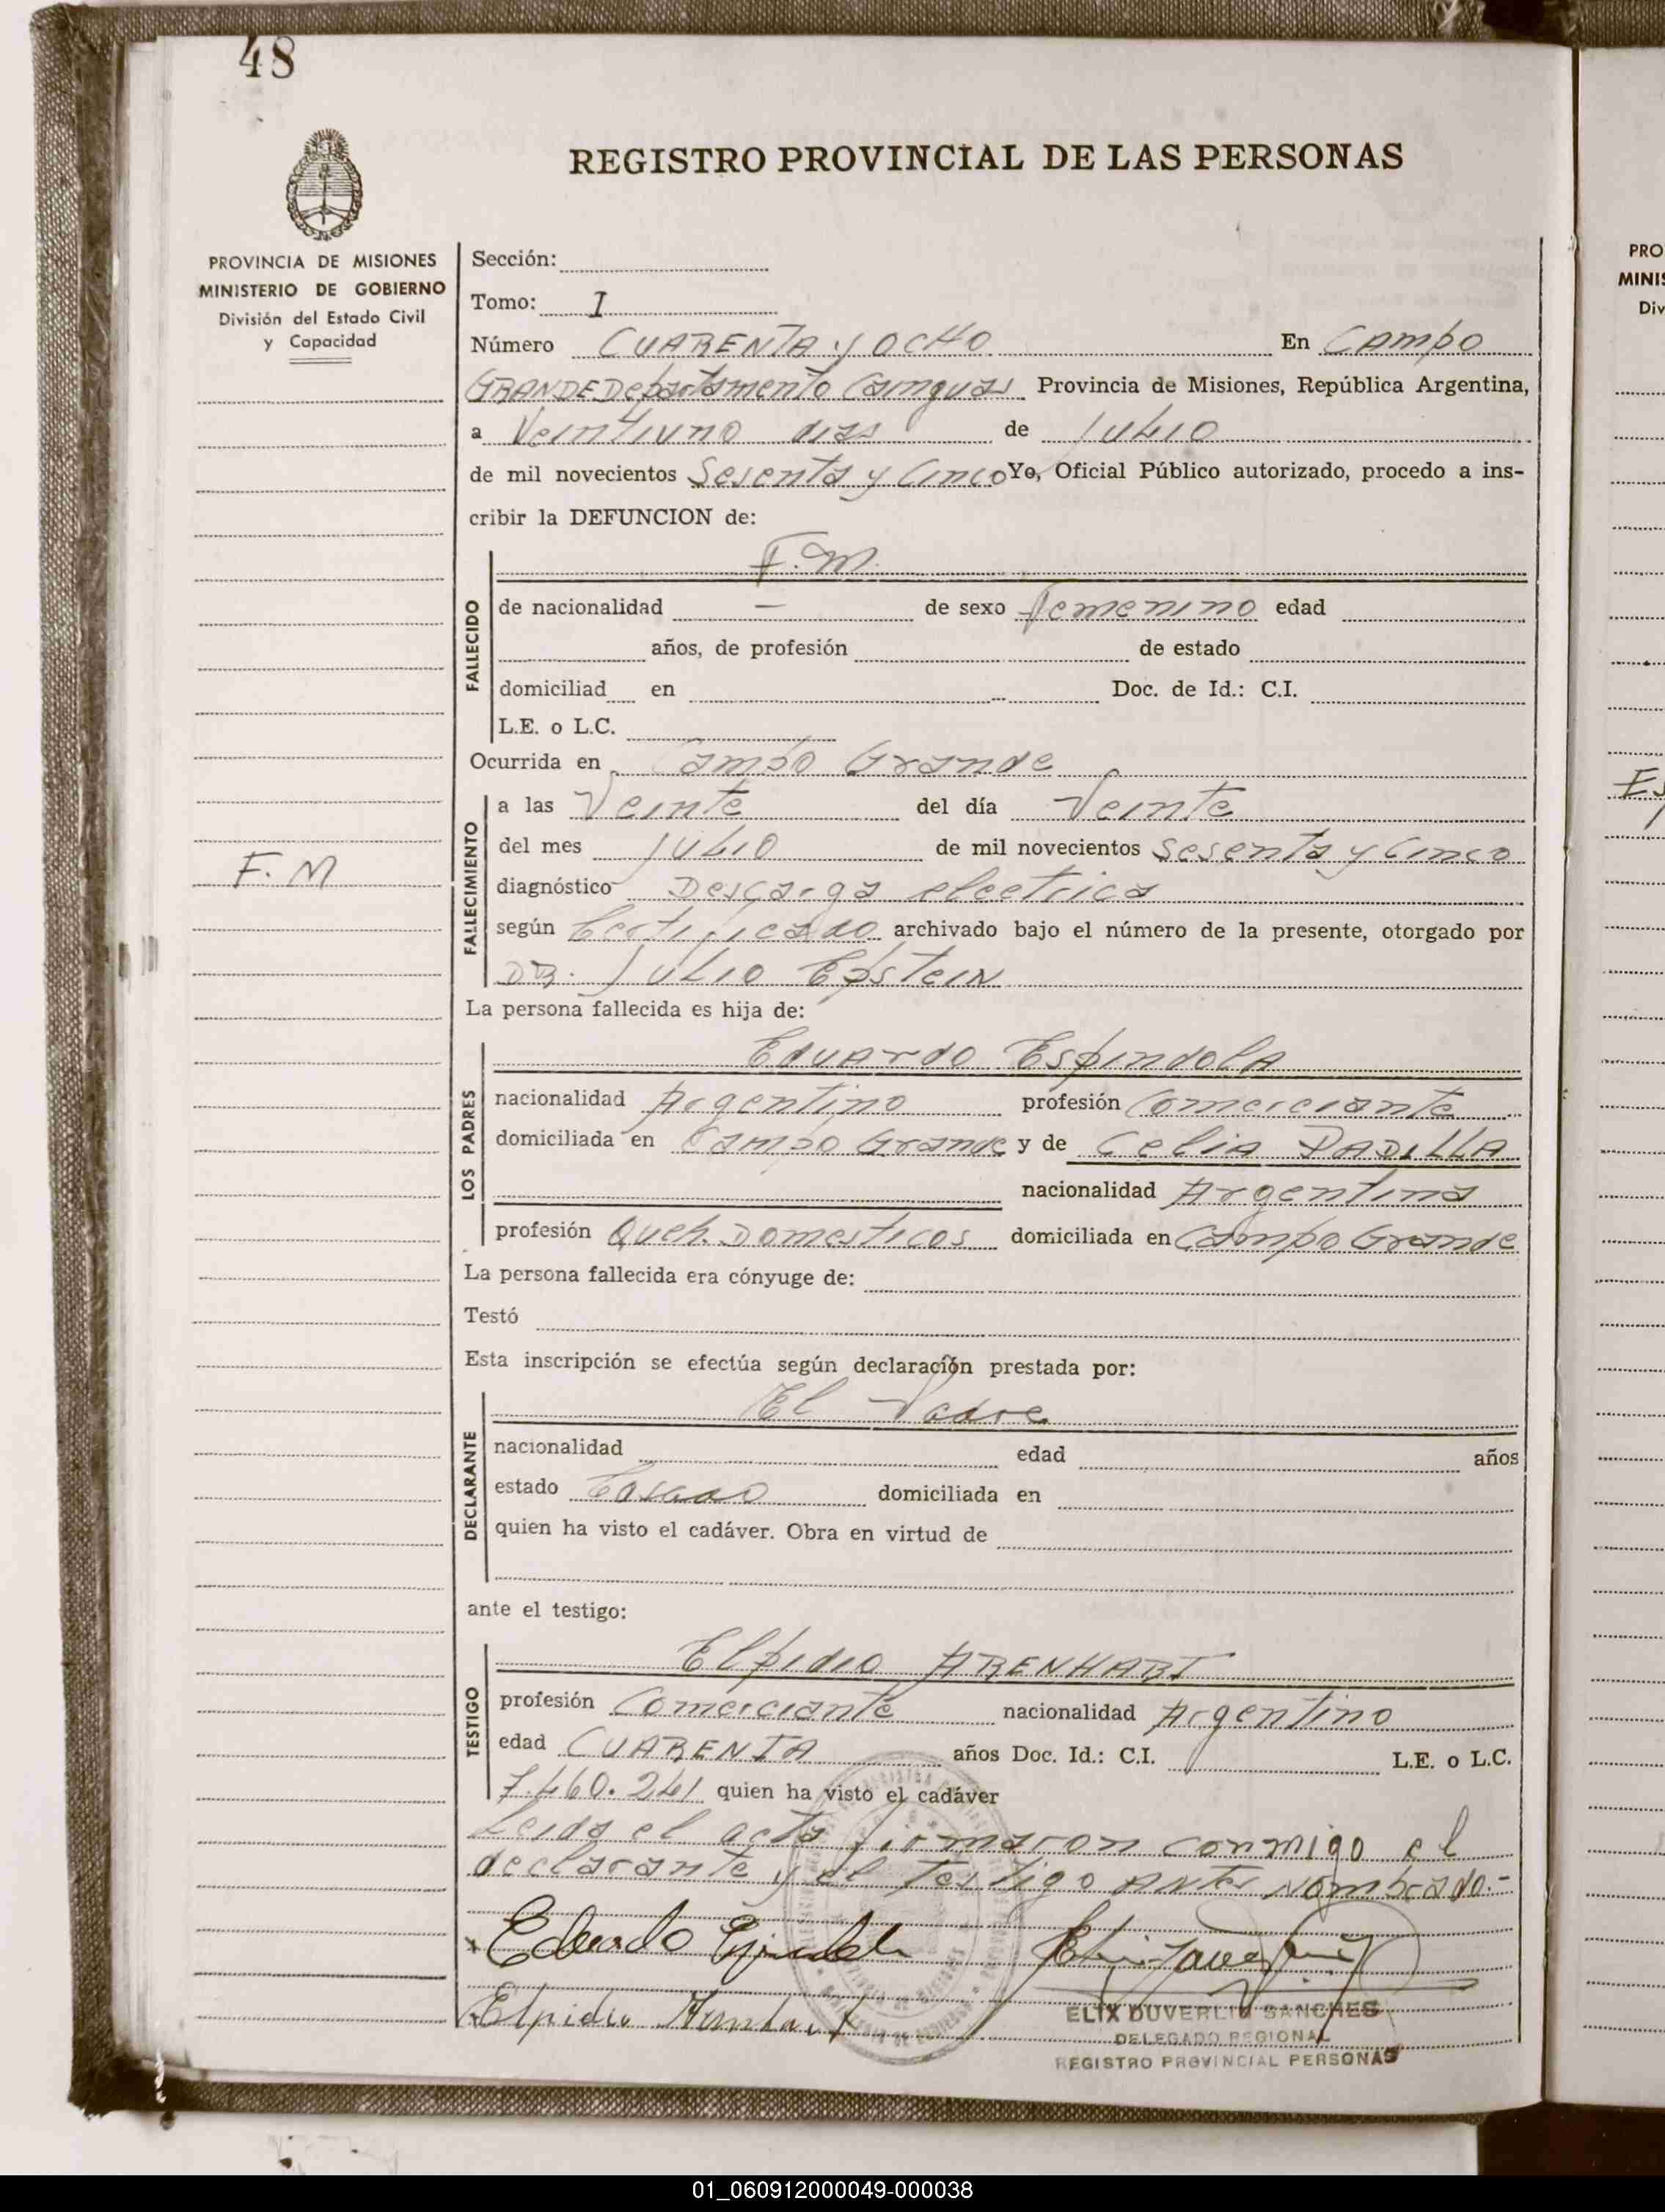 48
REGISTRO PROVINCIAL DE LAS PERSONAS
PROVINCIA DE MISIONES
MINISTERIO DE GOBIERNO
División del Estado Civil
y Capacidad
Sección:
Tomo: I
Número CUARENTA y OCHO En CAMPO
GRANDE Departamento Cainguas Provincia de Misiones, República Argentina,
a Veintiuno dias de Julio
de mil novecientos Sesenta y Cinco Yo, Oficial Público autorizado, procedo a ins-
cribir la DEFUNCION de:
FALLECIDO
F.M.
de nacionalidad — de sexo Femenino edad
años, de profesión de estado
domiciliad en Doc. de Id.: C.I.
L.E. o L.C.
Ocurrida en Campo Grande
FALLECIMIENTO
a las Veinte del día Veinte
del mes Julio de mil novecientos Sesenta y Cinco
F. M
diagnóstico Descarga electrica
según Certificado archivado bajo el número de la presente, otorgado por
DR. Julio Epstein
La persona fallecida es hija de:
LOS PADRES
Eduardo Espindola
nacionalidad Argentino profesión Comerciante
domiciliada en Campo Grande y de Celia PADILLA
nacionalidad Argentina
profesión Queh. Domesticos domiciliada en Campo Grande
La persona fallecida era cónyuge de:
Testó
Esta inscripción se efectúa según declaración prestada por:
DECLARANTE
El Padre
nacionalidad edad años
estado Casado domiciliada en
quien ha visto el cadáver. Obra en virtud de
ante el testigo:
TESTIGO
Elpidio ARENHART
profesión Comerciante nacionalidad Argentino
edad CUARENTA años Doc. Id.: C.I. L.E. o L.C.
7.460.241 quien ha visto el cadáver
Leida el acta firmaron conmigo el
declarante y el testigo antes nombrado.-
Eduardo Espindola
Elpidio Arenhart
ELIX DUVERLIO SANCHES
DELEGADO REGIONAL
REGISTRO PROVINCIAL PERSONAS
PRO
MINIS
Div
Es
01_060912000049-000038